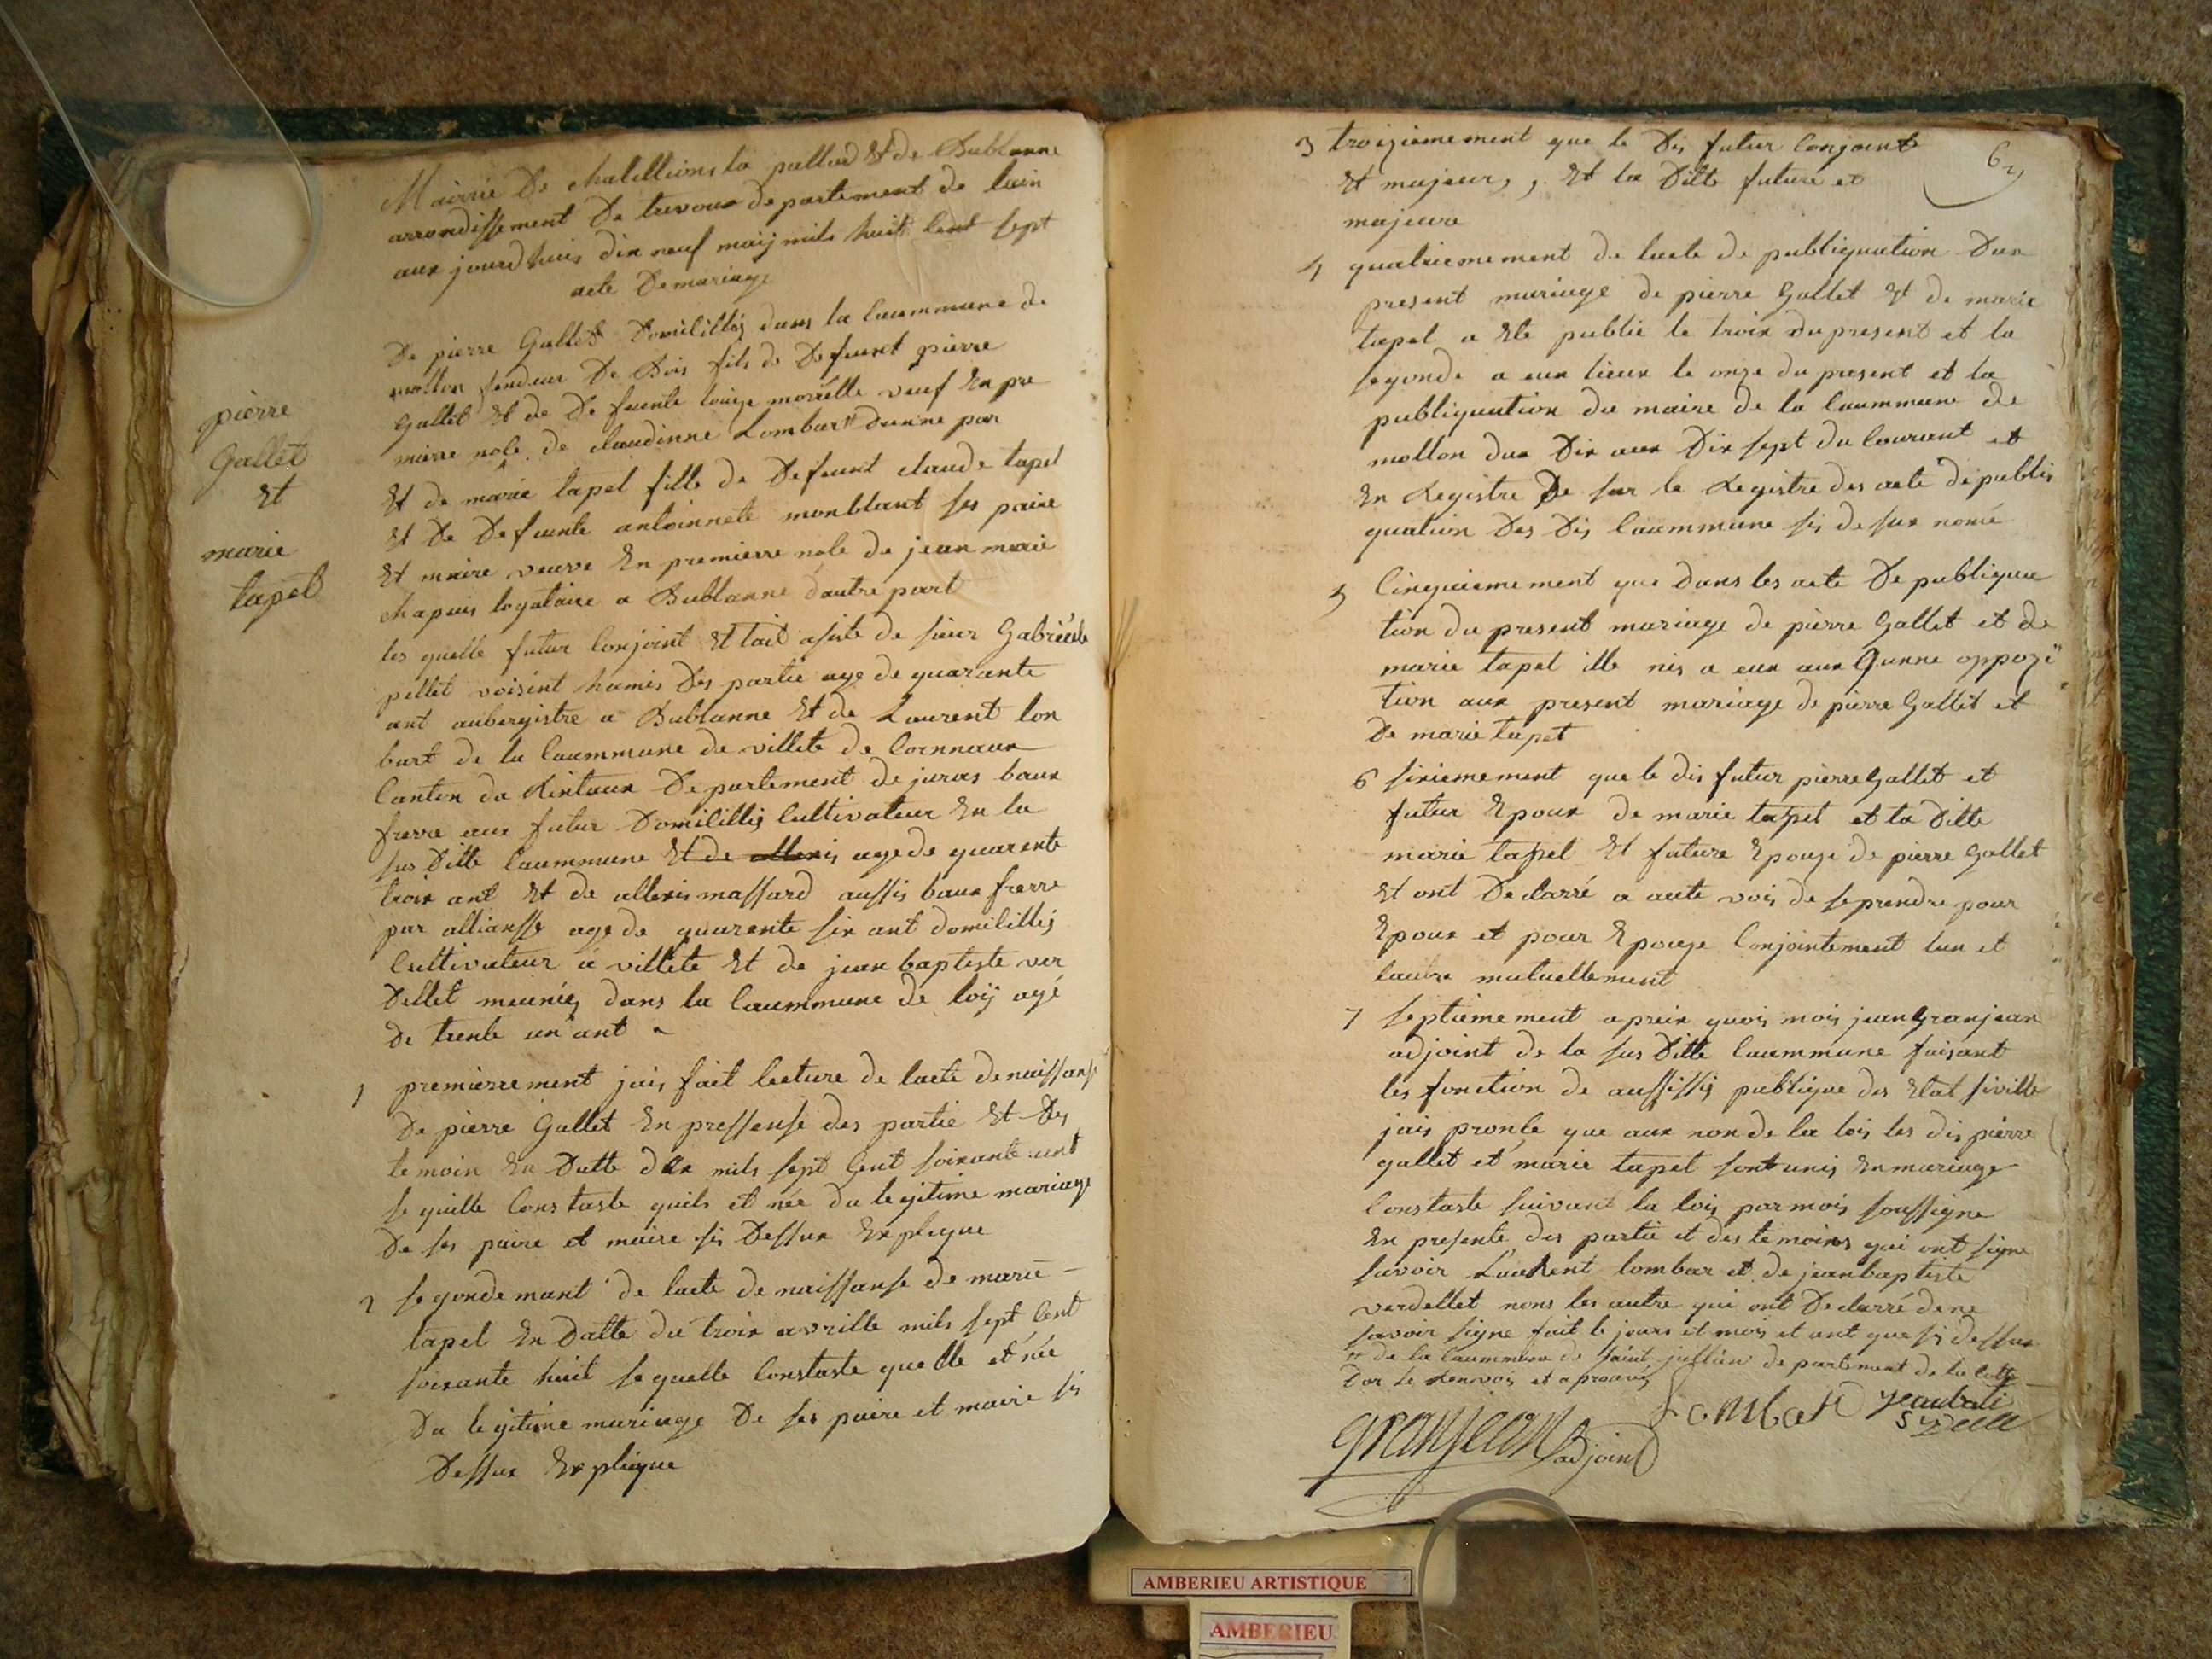 Mairrie De chatillions la pallud Et de Bublanne
arrondissement De trevoux departement de lain
aux jourdhuis dix neuf maij mils huit Cent sept
acte De mariage
De pierre Gallet Domicilliés dans la Caummune de
mollon fendeur De Bois fils de Defeunt pierre
Gallet Et de De feunte louize morrelle veuf En pre
miere nose de claudinne Lombart dunne par
Et de marie tapel fille de Defeunt claude tapel
Et De Defeunte antoinnete monblant ses paire
Et maire veuve En premierre nose de jean marie
chapuis logataire a Bublanne dautre part
les quelle futur Conjoint Et tait asiste de sieur Gabrielle
pellet voisint hamis Des partie age de quarante
ant aubergistre a Bublanne Et de Laurent lon
bart de la Caummune de villete de Cornnaux
Canton du Rintaux Departement de juras baux
frerre aux futur Domicillies Cultivateur En la
sus Ditte Caummune Et de allexis age de quarente
troix ant Et de allexis massard aussis baux frerre
par allianse age de quarente six ant domicillies
Cultivateur a villete Et de jean baptiste ver
Dellet meuniez dans la Caummune de loÿ agé
de trente un ant
pierre
Gallet
Et
marie
tapel
1 premierrement jais fait lecture de lacte de naissanse
De pierre Gallet En pressense des partie Et Des
temoin En Datte dux mils sept Cent soixante unt
se quille Constaste quils et née du legitime mariage
De ses paire et maire sis Dessux Explique
2 segondemant de lacte de naissanse de marie
tapel En Datte du troix avrille mils sept Cent
soixante huit sequelle Constaste quelle et née
Du legitime mariage De ses paire et maire sis
Dessux Explique
6
3 troiziemement que le Dis futur Conjoint
Et majeur, , Et la Ditte future et
majeure
4 quatriemement de lacte de publiquation Dux
present mariage de pierre Gallet Et de marie
tapel a Ete publie le troix du present et la
segonde a eux lieux le onze du present et la
publiquation du maire de la Caummune de
mollon dux Dix aux Dix sept du Courant et
En Registre De sur le Registre des acte de publi
quation Des Dis Caummune sis desux nomé
5 Cinquiemement que dans les acte De publiqua
tion du present mariage de pierre Gallet et de
marie tapel ille nis a eux aux Qunne oppozi
tion aux present mariage de pierre Gallet et
De marie tapet
6 sixiemement que le dis futur pierre Gallet et
futur Epoux de marie tapel et la Ditte
marie tapel Et future Epouze de pierre Gallet
Et ont Declarré a aute vois de seprendre pour
Epoux et pour Epouze Conjointement lun et
lautre mutuellement
7 septiemement apreix quois mois jean granjean
adjoint de la sus Ditte Caummune faisant
les fonction de aussissis publique des Etat siville
jais pronse que aux non de la lois les dis pierre
gallet et marie tapel sont unis En mariage
Constaste suivant la lois par mois soussigne
En presente des partie et des temoins qui ont signe
savoir Laurent lombar et de jean baptiste
verdellet nons les autre qui ont Declarré de ne
savoir signe fait le jours et mois et ant que sis dessux
# de la Caummune de saint jullien departement de la Cotte
Dor le Renvois et aprouvés
granjean adjoint
Lombar
Jeanbati